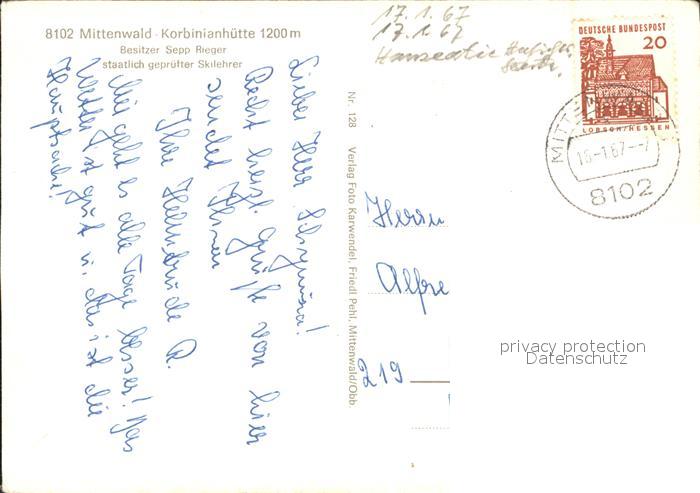 8102 Mittenwald · Korbinianhütte 1200 m
Besitzer Sepp Rieger
staatlich geprüfter Skilehrer
17.1.67
17.1.67
Hanseatic
DEUTSCHE BUNDESPOST
20
LORSCH/HESSEN
MITTE
16.-1.67.--7
8102
Lieber Herr
Recht herzl. Grüße von hier
sendet Ihnen
Ihre R.
Mir geht es alle Tage besser! Das
Wetter ist gut u. das ist die
Hauptsache!
Nr. 128 Verlag Foto Karwendel, Friedl Pehl, Mittenwald/Obb.
Herrn
Alfre
219
privacy protection
Datenschutz